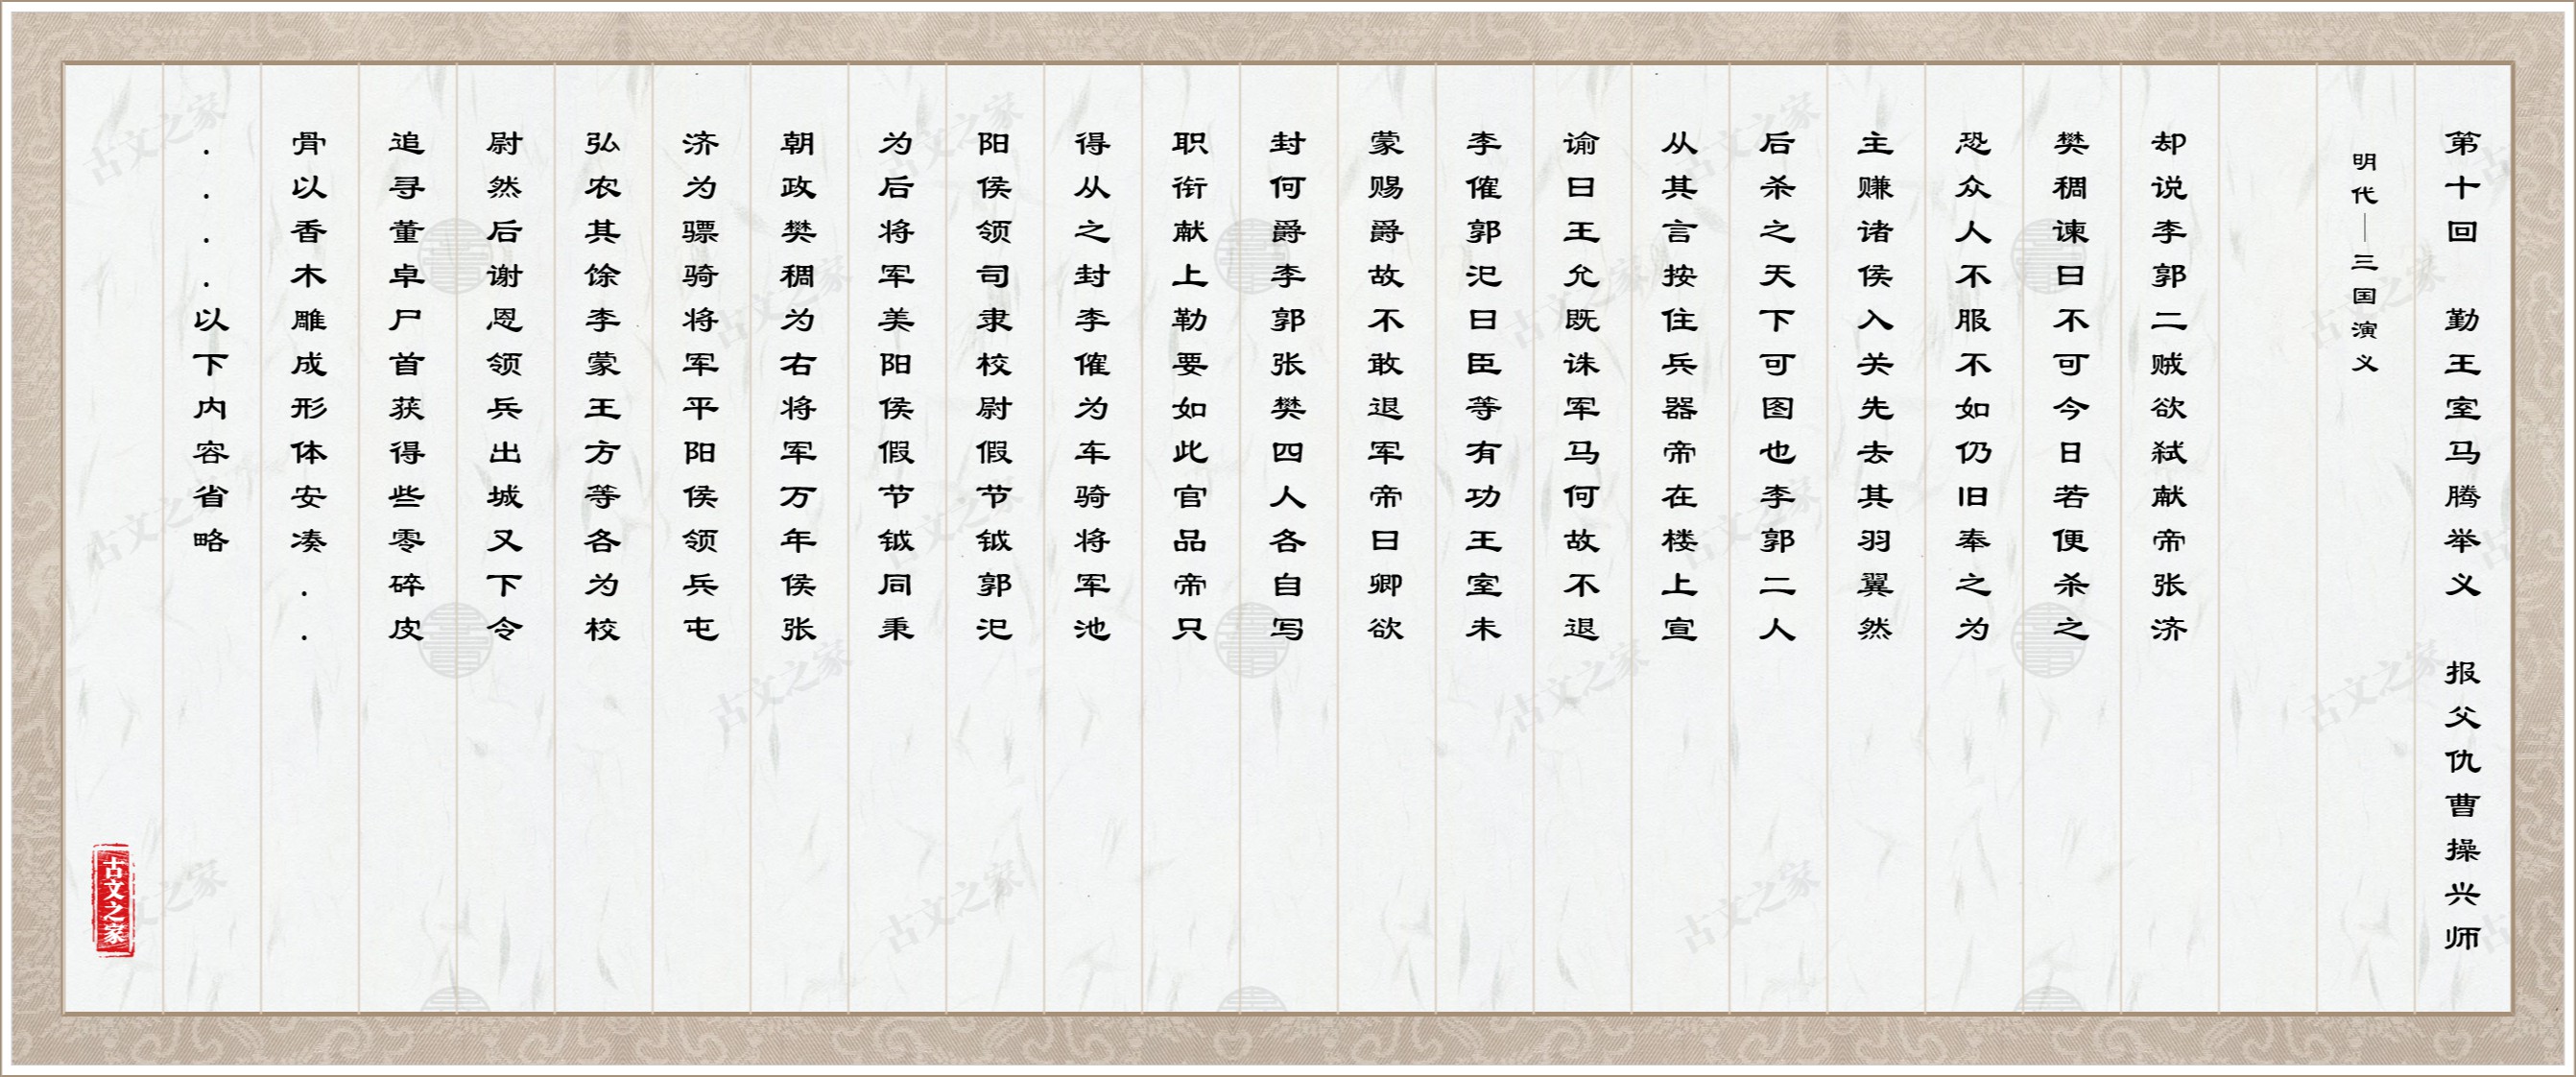 第十回 勤王室马腾举义 报父仇曹操兴师
明代—三国演义
却说李郭二贼欲弑献帝张济
樊稠谏曰不可今日若便杀之
恐众人不服不如仍旧奉之为
主赚诸侯入关先去其羽翼然
后杀之天下可图也李郭二人
从其言按住兵器帝在楼上宣
谕曰王允既诛军马何故不退
李傕郭汜曰臣等有功王室未
蒙赐爵故不敢退军帝曰卿欲
封何爵李郭张樊四人各自写
职衔献上勒要如此官品帝只
得从之封李傕为车骑将军池
阳侯领司隶校尉假节钺郭汜
为后将军美阳侯假节钺同秉
朝政樊稠为右将军万年侯张
济为骠骑将军平阳侯领兵屯
弘农其馀李蒙王方等各为校
尉然后谢恩领兵出城又下令
追寻董卓尸首获得些零碎皮
骨以香木雕成形体安凑..
....以下内容省略
古文之家